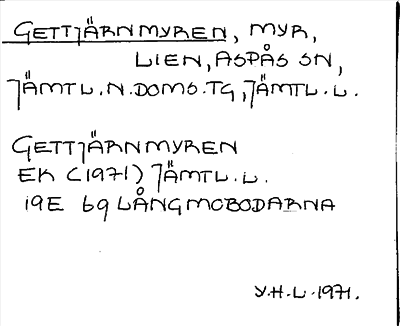 GETTJÄRNMYREN, MYR,
LIEN, ASPÅS SN,
JÄMTL.N.DOMS.TG, JÄMTL.L.
GETTJÄRNMYREN
EK (1971) JÄMTL.L.
19E 6g LÅNGMOBODARNA
Y.H-L.1971.